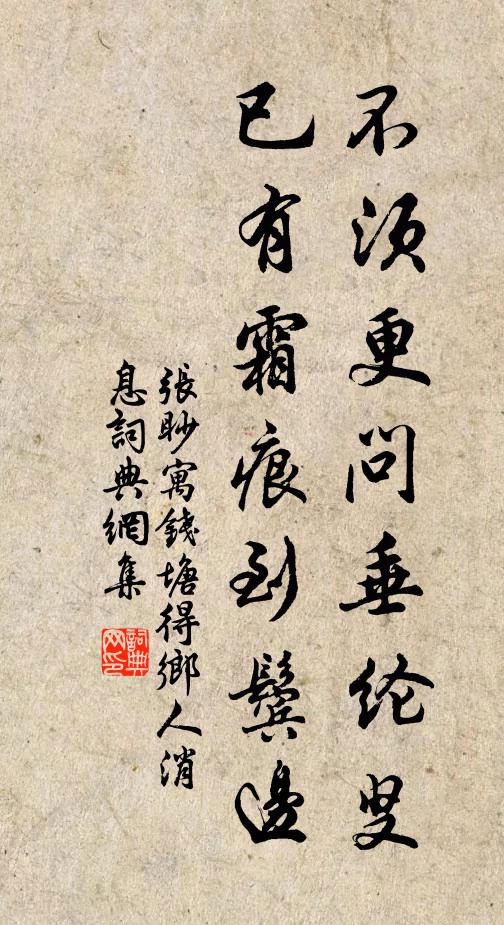 不须更问垂纶叟
已有霜痕到鬓邊
張眇寓錢塘得鄉人消
息詞典網集
詞典网印